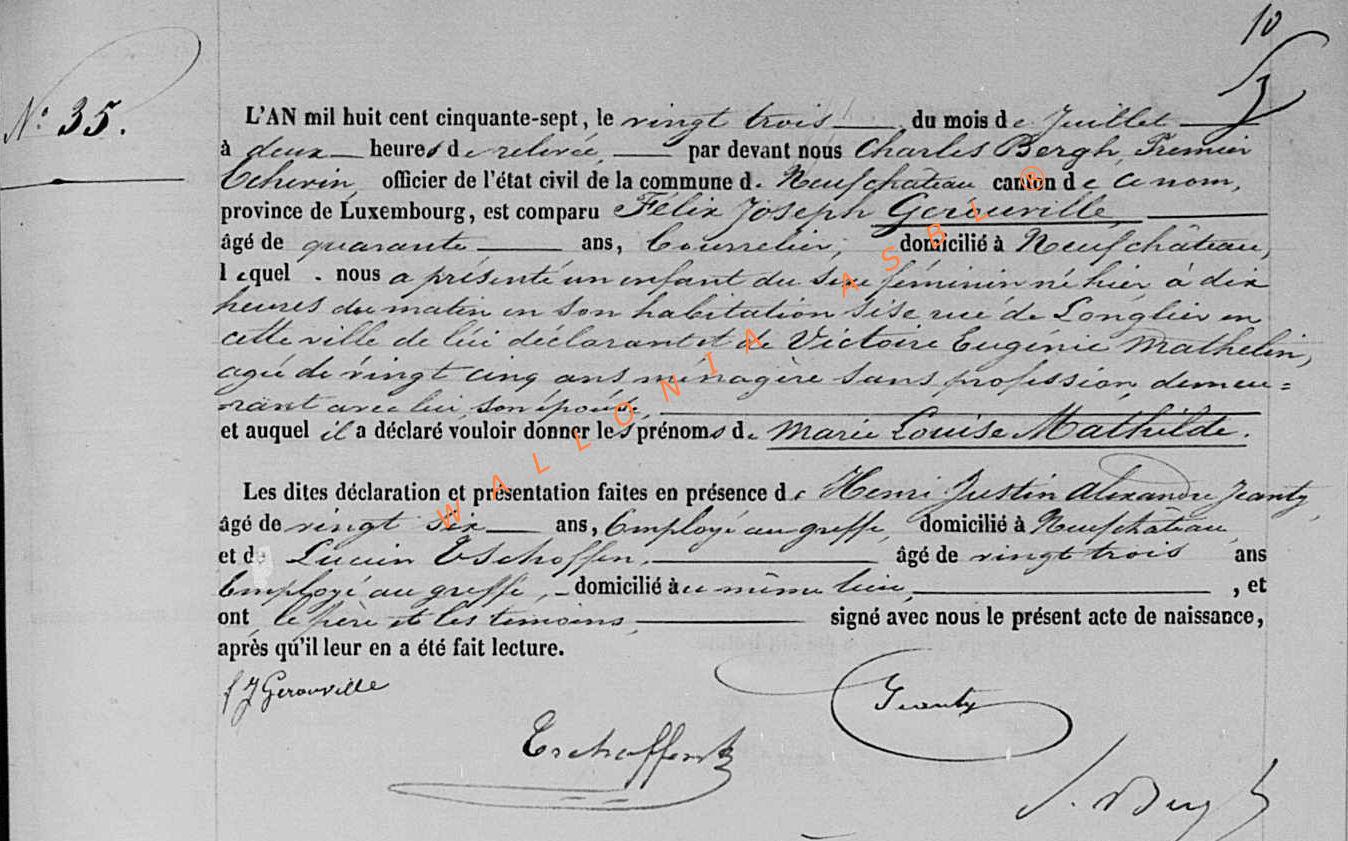 10
N° 35.
L'AN mil huit cent cinquante-sept, le vingt trois du mois de Juillet
à deux heures de relevée, par devant nous Charles Bergh, Premier
Echevin, officier de l'état civil de la commune d. Neufchateau canton de ce nom,
province de Luxembourg, est comparu Félix Joseph Gérouville,
âgé de quarante ans, Bourrelier, domicilié à Neufchâteau,
lequel nous a présenté un enfant du sexe féminin né hier à dix
heures du matin en son habitation sise rue de Longlier en
cette ville de lui déclarant et de Victoire Eugénie Mathelin,
agée de vingt cinq ans ménagère sans profession, demeu=
rant avec lui, son épouse,
et auquel il a déclaré vouloir donner les prénoms de Marie Louise Mathilde.
Les dites déclaration et présentation faites en présence de Henri Justin Alexandre Jeanty,
âgé de vingt six ans, Employé au greffe, domicilié à Neufchâteau
et de Lucien Tschoffen, âgé de vingt trois ans
Employé au greffe, domicilié au même lieu, , et
ont le père et les témoins, signé avec nous le présent acte de naissance,
après qu'il leur en a été fait lecture.
f J Gerouville
Jeanty
Tschoffen
Bergh
WALLONIA ASBL ®